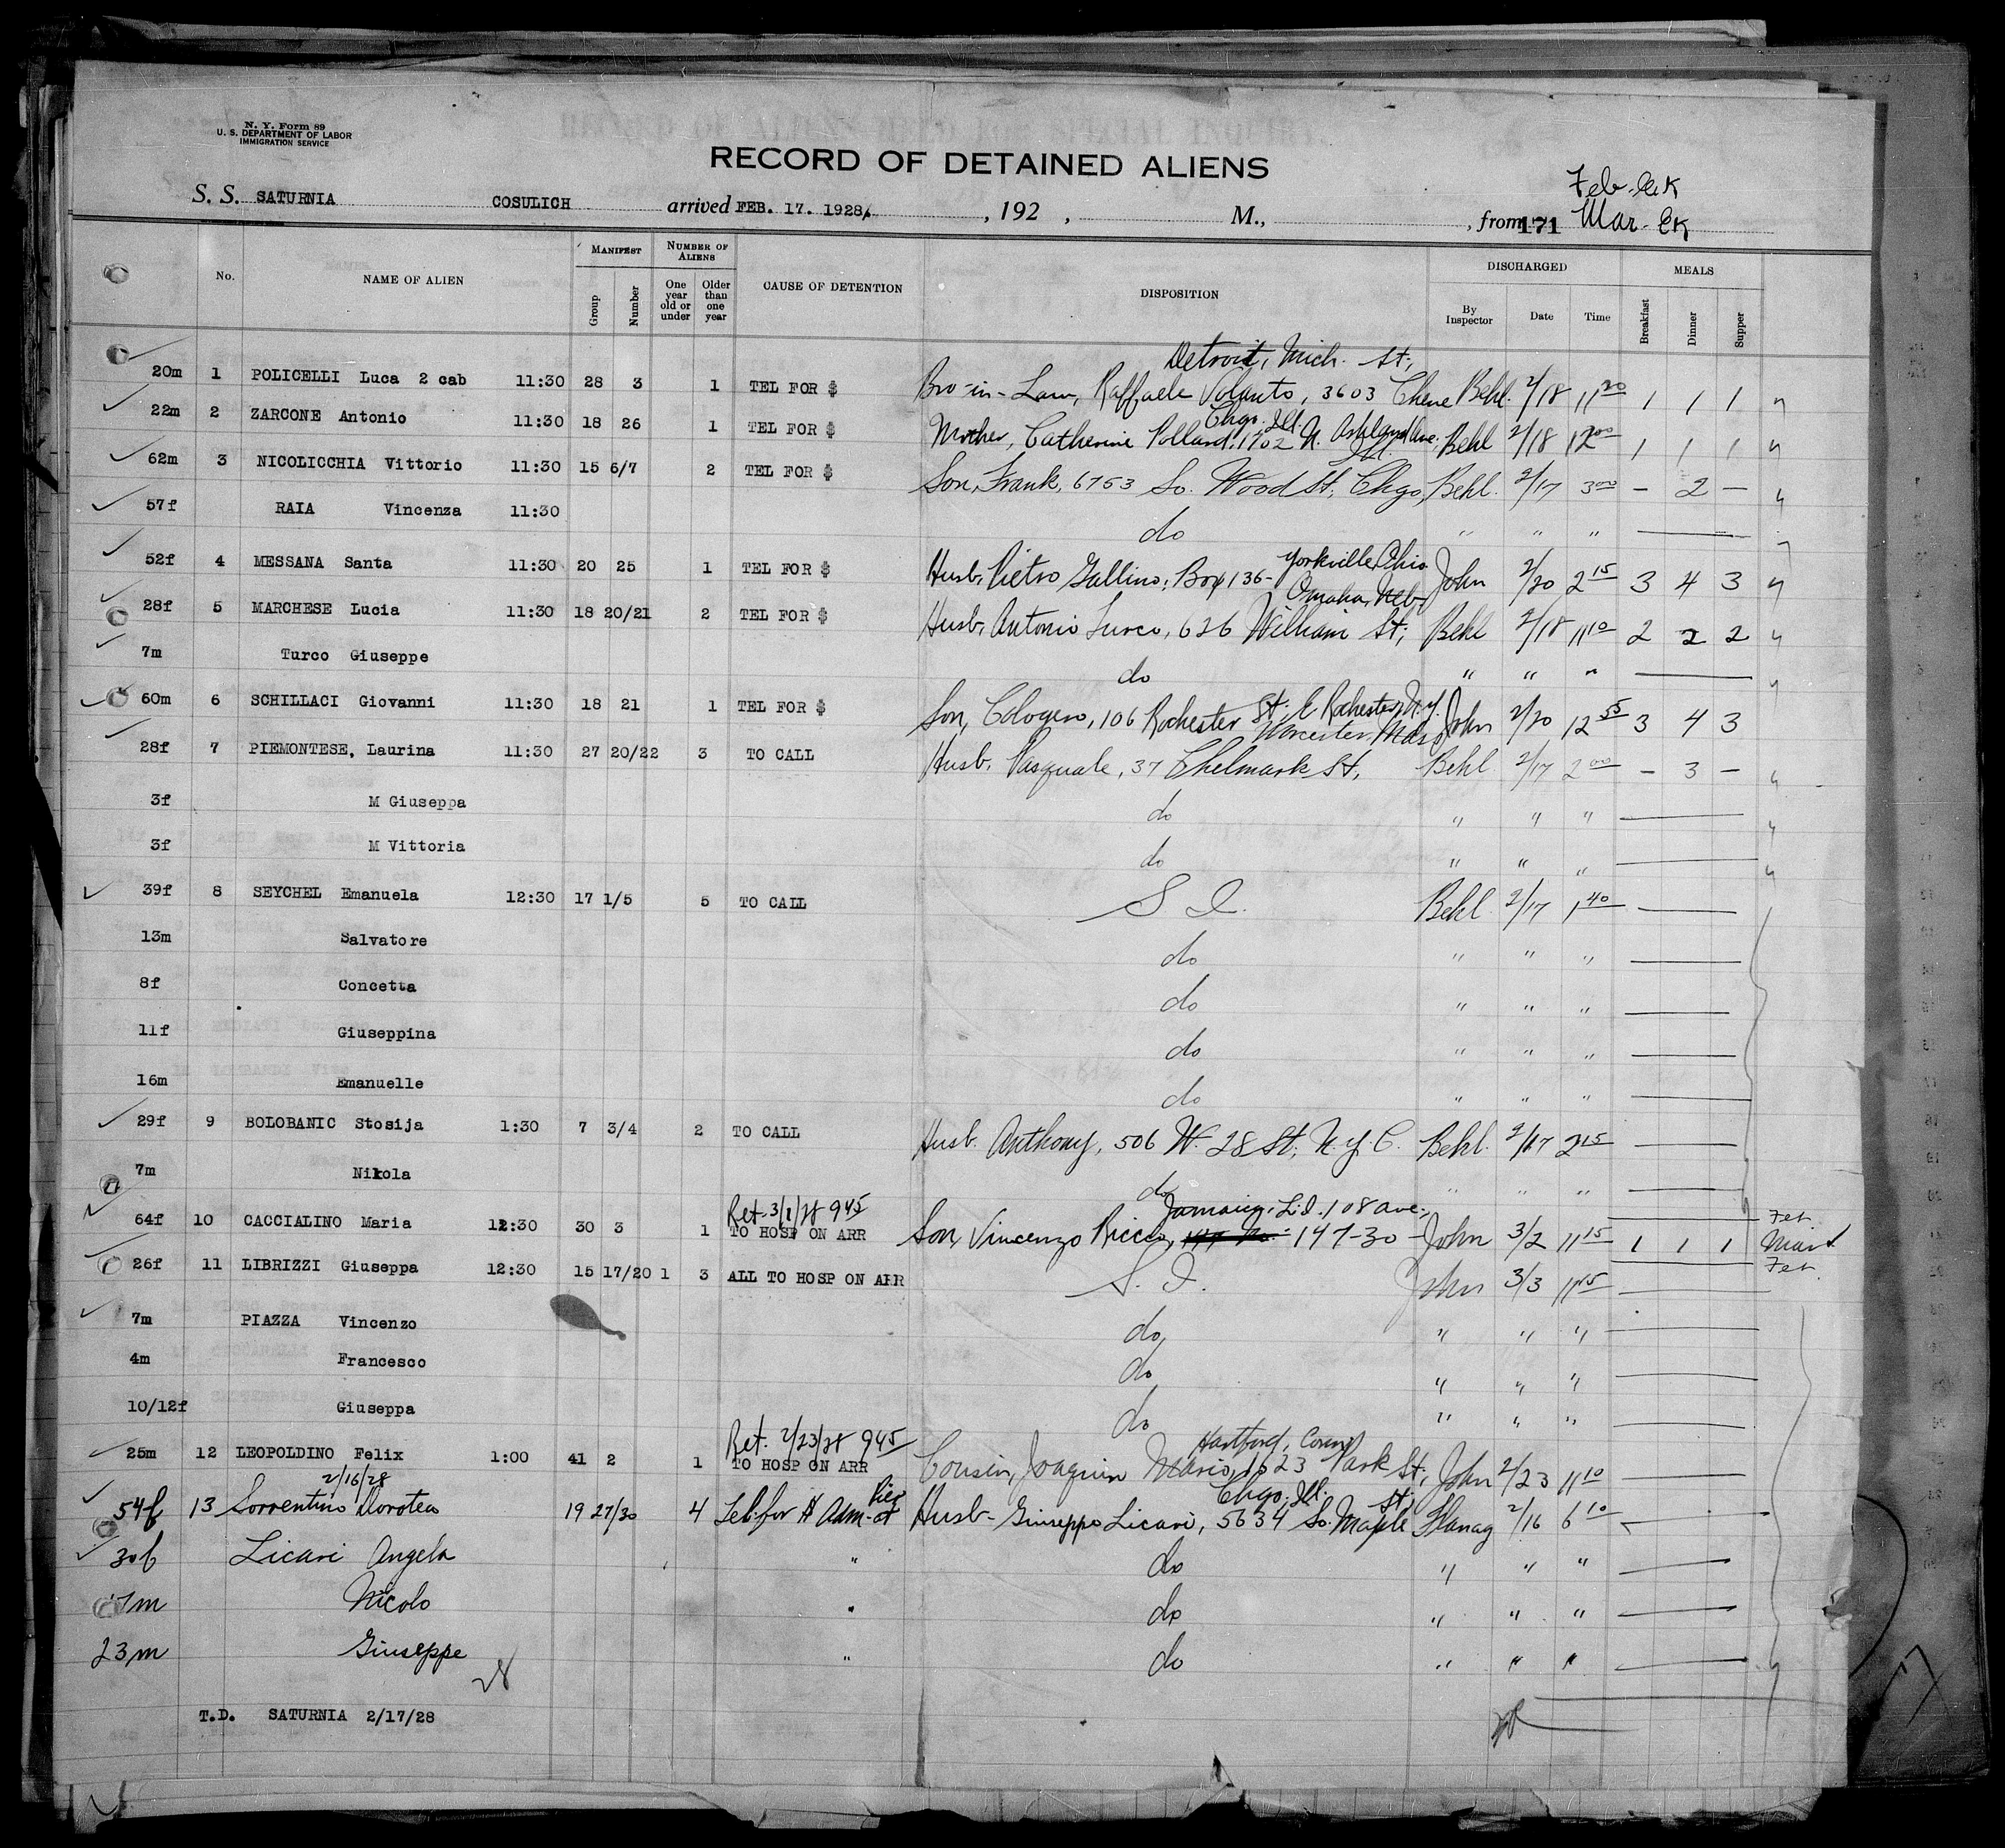 N. Y. Form 89
U. S. DEPARTMENT OF LABOR
IMMIGRATION SERVICE
RECORD OF DETAINED ALIENS
S. S. SATURNIA COSULICH arrived FEB. 17. 1928. , 192 , M., , from 171
Mar - EK
No. NAME OF ALIEN MANIFEST Group Number NUMBER OF ALIENS One year old or under Older than one year CAUSE OF DETENTION DISPOSITION DISCHARGED By Inspector Date Time MEALS Breakfast Dinner Supper
Detroit, Mich. St.,
20m 1 POLICELLI Luca 2 cab 11:30 28 3 1 TEL FOR $ Bro-in-Law, Raffaele Volanto, 3603 Chene Behl. 2/18 11 20 1 1 1
Chgo. Ill.
22m 2 ZARCONE Antonio 11:30 18 26 1 TEL FOR $ Mother, Catherine Pollard, 1702 N. Ashland Ave. Behl 2/18 12 00 1 1 1
Ill.
62m 3 NICOLICCHIA Vittorio 11:30 15 6/7 2 TEL FOR $ Son, Frank, 6753 So. Wood St., Chgo, Behl. 2/17 3 00 - 2 -
57f RAIA Vincenza 11:30 do " " "
Yorkville, Ohio
52f 4 MESSANA Santa 11:30 20 25 1 TEL FOR $ Husb, Pietro Gallino, Box 136- John 2/20 2 15 3 4 3
Omaha, Neb,
28f 5 MARCHESE Lucia 11:30 18 20/21 2 TEL FOR $ Husb, Antonio Turco, 626 William St; Behl 2/18 11 10 2 2 2
7m Turco Giuseppe do " " "
60m 6 SCHILLACI Giovanni 11:30 18 21 1 TEL FOR $ Son, Calogero, 106 Rochester St. E Rochester, N.Y. John 2/20 12 55 3 4 3
Worcester, Mass
28f 7 PIEMONTESE, Laurina 11:30 27 20/22 3 TO CALL Husb. Pasquale, 37 Chelmark St, Behl 2/17 2 00 - 3 -
3f M Giuseppa do " " "
3f M Vittoria do " " "
39f 8 SEYCHEL Emanuela 12:30 17 1/5 5 TO CALL S I. Behl. 2/17 1 40
13m Salvatore do " " "
8f Concetta do " " "
11f Giuseppina do " " "
16m Emanuelle do " " "
29f 9 BOLOBANIC Stosija 1:30 7 3/4 2 TO CALL Husb. Anthony, 506 W. 28 St; N.Y.C. Behl. 2/17 2 15
7m Nikola do " " "
Ret. 3/1/28 9 45 Jamaica, L.I. 108 Ave,
64f 10 CACCIALINO Maria 12:30 30 3 1 TO HOSP ON ARR Son, Vincenzo Ricco, 147-30 - John 3/2 11 15 1 1 1
26f 11 LIBRIZZI Giuseppa 12:30 15 17/20 1 3 ALL TO HOSP ON ARR S. I. John 3/3 11 15
7m PIAZZA Vincenzo do, " " "
4m Francesco do " " "
10/12f Giuseppa do " " "
Ret. 2/23/28 9 45 Hartford, Conn
25m 12 LEOPOLDINO Felix 1:00 41 2 1 TO HOSP ON ARR Cousin, Joaquim Mario, 1623 Park St, John 2/23 11 10
2/16/28 Pier Chgo. Ill. St,
54f 13 Sorrentino Dorotea 19 27/30 4 Tel. for $ Adm-at Husb- Giuseppe Licari, 5634 So. Maple Flanag 2/16 6 10
30f Licari Angela " do " " "
7m Nicolo " do " " "
23m Giuseppe " do " " "
T.D. SATURNIA 2/17/28